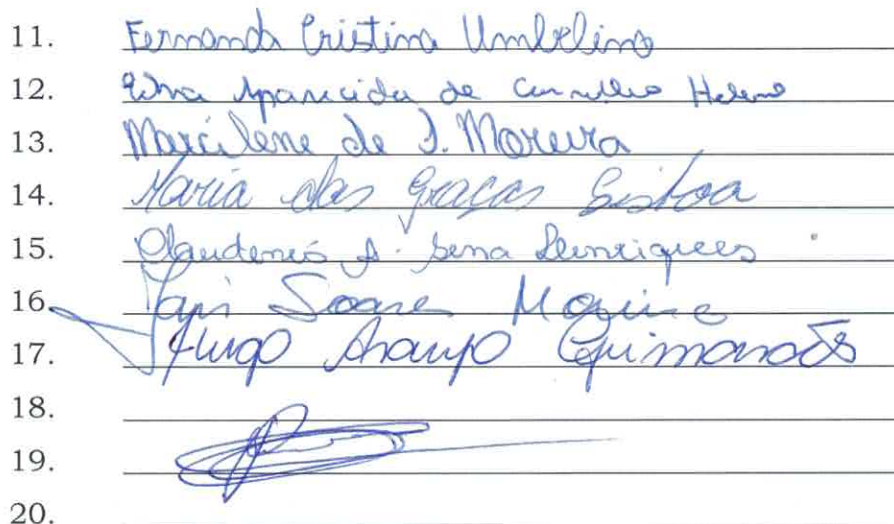 11. Fernanda Cristina Umbelino
12. Aparecida de Carvalho Helena
13. Marcilene de J. Moreira
14. Maria das Graças Lisboa
15. A. Sena Henriques
16. Soares Moreira
17. Hugo Araujo Guimarães
18.
19.
20.